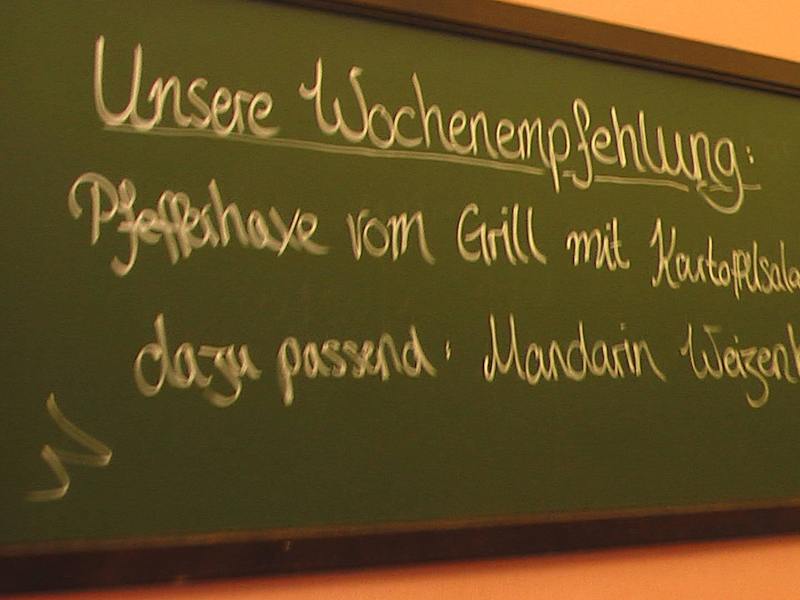 Unsere Wochenempfehlung:
Pfefferhaxe vom Grill mit Kartoffelsala
dazu passend: Mandarin Weizenb